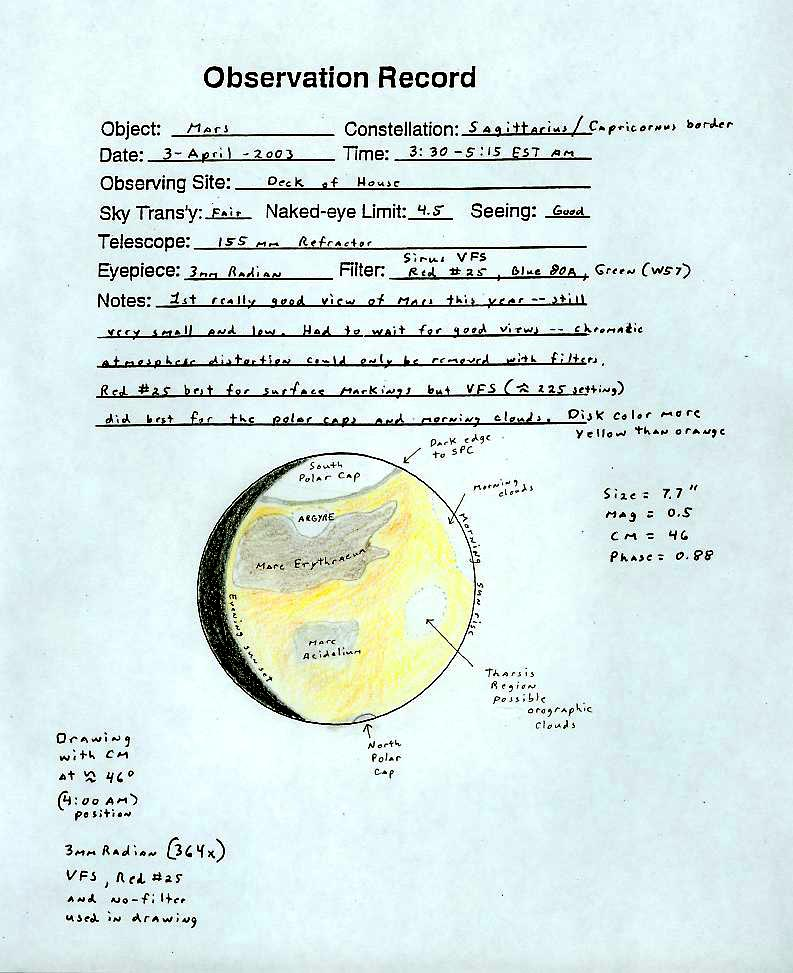 Observation Record
Object: Mars Constellation: Sagittarius/Capricornus border
Date: 3-April-2003 Time: 3:30-5:15 EST AM
Observing Site: Deck of House
Sky Trans'y: Fair Naked-eye Limit: 4.5 Seeing: Good
Telescope: 155 mm Refractor
Sirus VFS
Eyepiece: 3mm Radian Filter: Red #25, Blue 80A, Green (W57)
Notes: 1st really good view of Mars this year -- still
very small and low. Had to wait for good views -- chromatic
atmosphere distortion could only be removed with filters.
Red #25 best for surface markings but VFS (≈ 225 setting)
did best for the polar caps and morning clouds. Disk color more
yellow than orange
Dark edge
to SPC
South
Polar Cap
Morning
clouds
Size = 7.7"
Mag = 0.5
CM = 46
Phase = 0.88
ARGYRE
Mare Erythraeum
Morning Sun rise
Evening sunset
Mare
Acidalium
Tharsis
Region
possible
orographic
clouds
North
Polar
Cap
Drawing
with CM
at ≈ 46°
(4:00 AM)
position
3mm Radian (364x)
VFS, Red #25
and no-filter
used in drawing